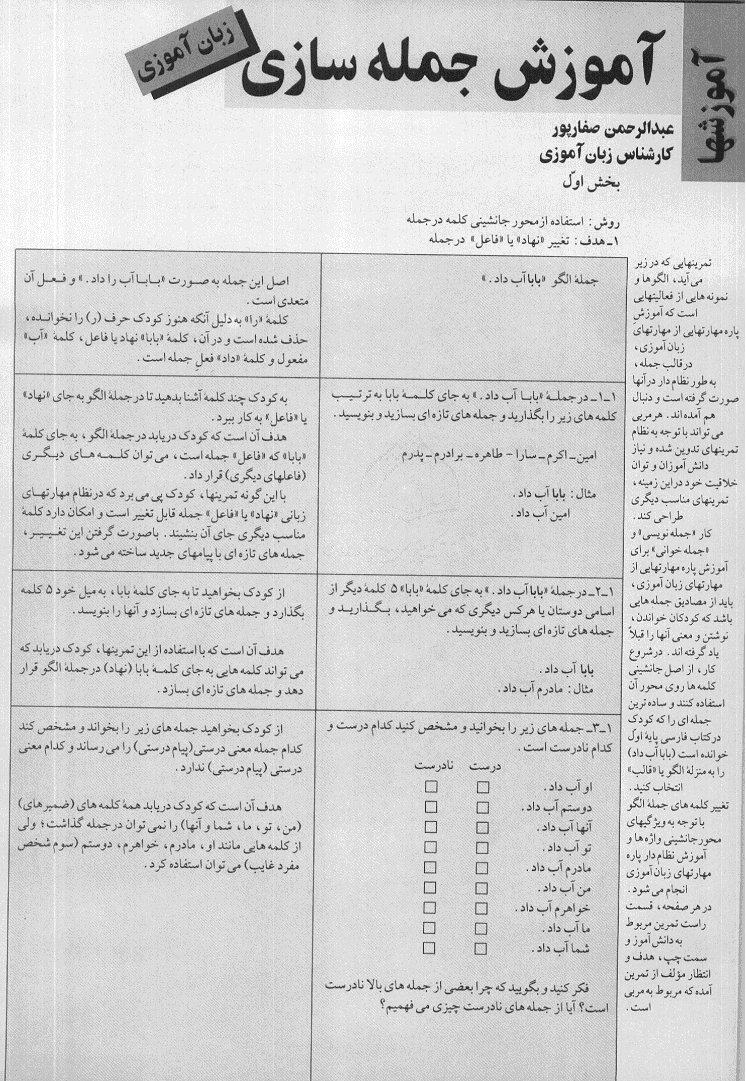 آموزشها
آموزش جمله سازی
زبان آموزی
عبدالرحمن صفارپور
کارشناس زبان آموزی
بخش اوّل
روش: استفاده از محور جانشینی کلمه در جمله
۱ـ هدف: تغییر «نهاد» یا «فاعل» در جمله
تمرینهایی که در زیر
می‌آید، الگوها و
نمونه هایی از فعالیتهایی
است که آموزشِ
پاره مهارتهایی از مهارتهای
زبان آموزی،
در قالب جمله،
به طور نظام دار در آنها
صورت گرفته است و دنبال
هم آمده‌اند. هر مربی
می تواند با توجه به نظام
تمرینهای تدوین شده و نیاز
دانش آموزان و توان
خلاقیت خود در این زمینه،
تمرینهای مناسب دیگری
طراحی کند.
کار «جمله نویسی» و
«جمله خوانی» برای
آموزش پاره مهارتهایی از
مهارتهای زبان آموزی،
باید از مصادیق جمله هایی
باشد که کودکان خواندن،
نوشتن و معنی آنها را قبلاً
یاد گرفته اند. در شروع
کار، از اصل جانشینی
کلمه ها روی محور آن
استفاده کنند و ساده ترین
جمله ای را که کودک
در کتاب فارسی پایهٔ اوّل
خوانده است (بابا آب داد)
را به منزلهٔ الگو یا «قالب»
انتخاب کنید.
تغییر کلمه های جملهٔ الگو
با توجه به ویژگیهای
محور جانشینی واژه ها و
آموزش نظام دار پاره
مهارتهای زبان آموزی
انجام می شود.
در هر صفحه، قسمت
راست تمرین مربوط
به دانش آموز و
سمت چپ، هدف و
انتظار مؤلف از تمرین
آمده که مربوط به مربی
است.
جملهٔ الگو «بابا آب داد.»
اصل این جمله به صورت «بابا آب را داد.» و فعل آن
متعدی است.
کلمهٔ «را» به دلیل آنکه هنوز کودک حرف (ر) را نخوانده،
حذف شده است و در آن، کلمهٔ «بابا» نهاد یا فاعل، کلمهٔ «آب»
مفعول و کلمهٔ «داد» فعلِ جمله است.
۱ـ۱ـ در جملهٔ «بابا آب داد.» به جای کلمهٔ بابا به ترتیب
کلمه های زیر را بگذارید و جمله های تازه ای بسازید و بنویسید.
امین ـ اکرم ـ سارا ـ طاهره ـ برادرم ـ پدرم
مثال: بابا آب داد.
امین آب داد.
به کودک چند کلمهٔ آشنا بدهید تا در جملهٔ الگو به جای «نهاد»
یا «فاعل» به کار ببرد.
هدف آن است که کودک دریابد در جملهٔ الگو، به جای کلمهٔ
«بابا» که «فاعل» جمله است، می توان کلمه های دیگری
(فاعلهای دیگری) قرار داد.
با این گونه تمرینها، کودک پی می برد که در نظام مهارتهای
زبانی «نهاد» یا «فاعل» جمله قابل تغییر است و امکان دارد کلمهٔ
مناسب دیگری جای آن بنشیند. با صورت گرفتن این تغییر،
جمله های تازه ای با پیامهای جدید ساخته می شود.
۱ـ۲ـ در جملهٔ «بابا آب داد.» به جای کلمهٔ «بابا» ۵ کلمهٔ دیگر از
اسامی دوستان یا هر کس دیگری که می خواهید، بگذارید و
جمله های تازه ای بسازید و بنویسید.
بابا آب داد.
مثال: مادرم آب داد.
از کودک بخواهید تا به جای کلمهٔ بابا، به میل خود ۵ کلمه
بگذارد و جمله های تازه ای بسازد و آنها را بنویسد.
هدف آن است که با استفاده از این تمرینها، کودک دریابد که
می تواند کلمه هایی به جای کلمهٔ بابا (نهاد) در جملهٔ الگو قرار
دهد و جمله های تازه ای بسازد.
۱ـ۳ـ جمله های زیر را بخوانید و مشخص کنید کدام درست و
کدام نادرست است.
درست نادرست
او آب داد.
دوستم آب داد.
آنها آب داد.
تو آب داد.
مادرم آب داد.
من آب داد.
خواهرم آب داد.
ما آب داد.
شما آب داد.
فکر کنید و بگویید که چرا بعضی از جمله های بالا نادرست
است؟ آیا از جمله های نادرست چیزی می فهمیم؟
از کودک بخواهید جمله های زیر را بخواند و مشخص کند
کدام جمله معنی درستی (پیام درستی) را می رساند و کدام معنی
درستی (پیام درستی) ندارد.
هدف آن است که کودک دریابد همهٔ کلمه های (ضمیرهای)
(من، تو، ما، شما و آنها) را نمی توان در جمله گذاشت؛ ولی
از کلمه هایی مانند او، مادرم، خواهرم، دوستم (سوم شخص
مفرد غایب) می توان استفاده کرد.